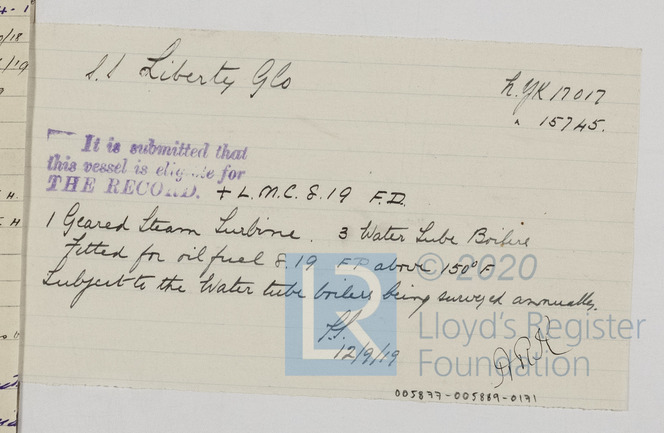 S.S Liberty Glo
N.YK 17017
" 15745.
It is submitted that
this vessel is eligible for
THE RECORD. + L.M.C. 8.19 F.D.
1 Geared Steam Turbine. 3 Water Tube Boilers
fitted for oil fuel 8.19 F.P. above 150°F
Subject to the Water tube boilers being surveyed annually.
12/9/19
© 2020
LR
Lloyd's Register
Foundation
005877-005889-0171